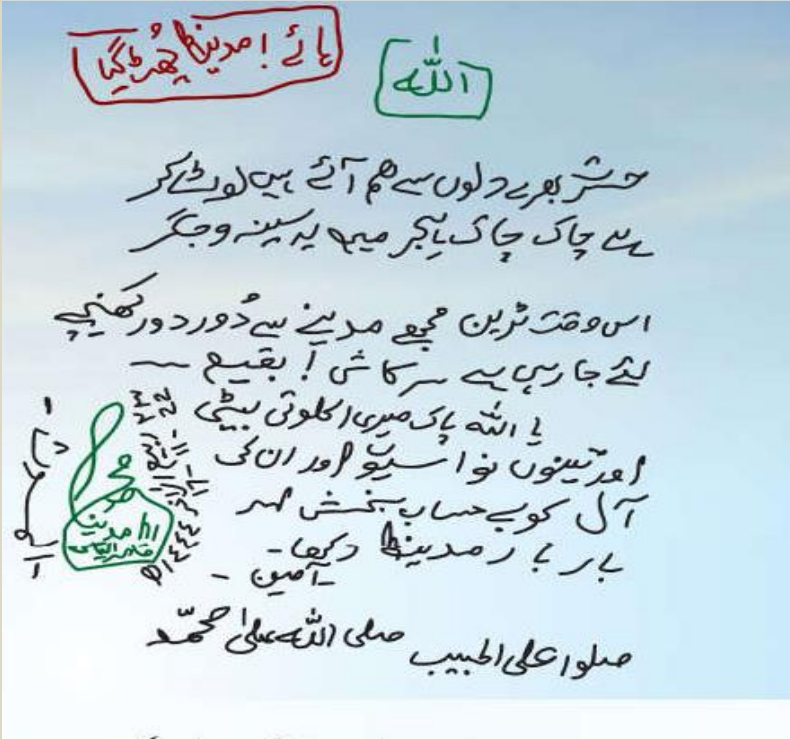 ہائے! مدینہ چھُٹ گیا
اللہ
حشر بھرے دلوں سے ہم آئے ہیں لوٹ کر
ہے چاک چاک ہجر میں یہ سینہ و جگر
اس وقت ٹرین مجھے مدینے سے دُور دور کھینچے
لئے جا رہی ہے سر کاش! بقیع
یا اللہ پاک میری اکلوتی بیٹی
اور تینوں نواسیوں اور ان کی
آل کو بے حساب بخش
بار بار مدینہ دکھا۔
آمین۔
صلوا علی الحبیب صلی اللہ علیٰ محمّد